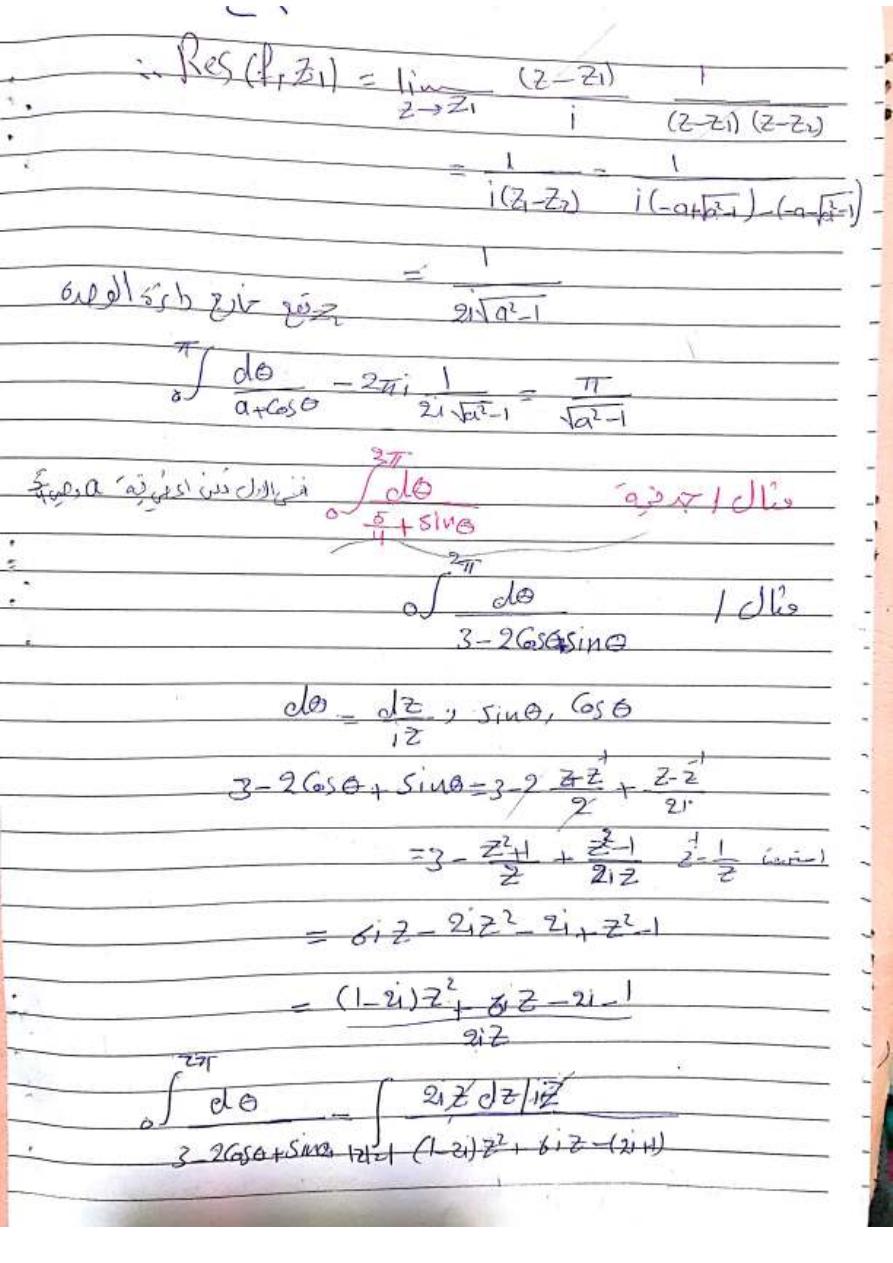 ∴ Res(f, z₁) = lim_{z→z₁} (z-z₁)/i 1/((z-z₁)(z-z₂))
= 1/(i(z₁-z₂)) = 1/(i(-a+√(a²-1))-(-a-√(a²-1)))
= 1/(2i√(a²-1)) z₂ تقع خارج دائرة الوحدة
₀∫^π dθ/(a+cosθ) = 2πi 1/(2i√(a²-1)) = π/√(a²-1)
مثال / جد قيمة ₀∫^{2π} dθ/(5/4 + sinθ)
مثال / ₀∫^{2π} dθ/(3-2cosθ+sinθ)
dθ = dz/iz , sinθ, cosθ
3-2cosθ + sinθ = 3-2 (z+z⁻¹)/2 + (z-z⁻¹)/2i
= 3 - (z²+1)/z + (z²-1)/2iz z⁻¹=1/z
= 6iz - 2iz² - 2i + z² - 1
= ((1-2i)z² + 6iz - 2i - 1)/2iz
₀∫^{2π} dθ/(3-2cosθ+sinθ) = ∫_{|z|=1} (2iz dz/iz)/((1-2i)z² + 6iz - (2i+1))